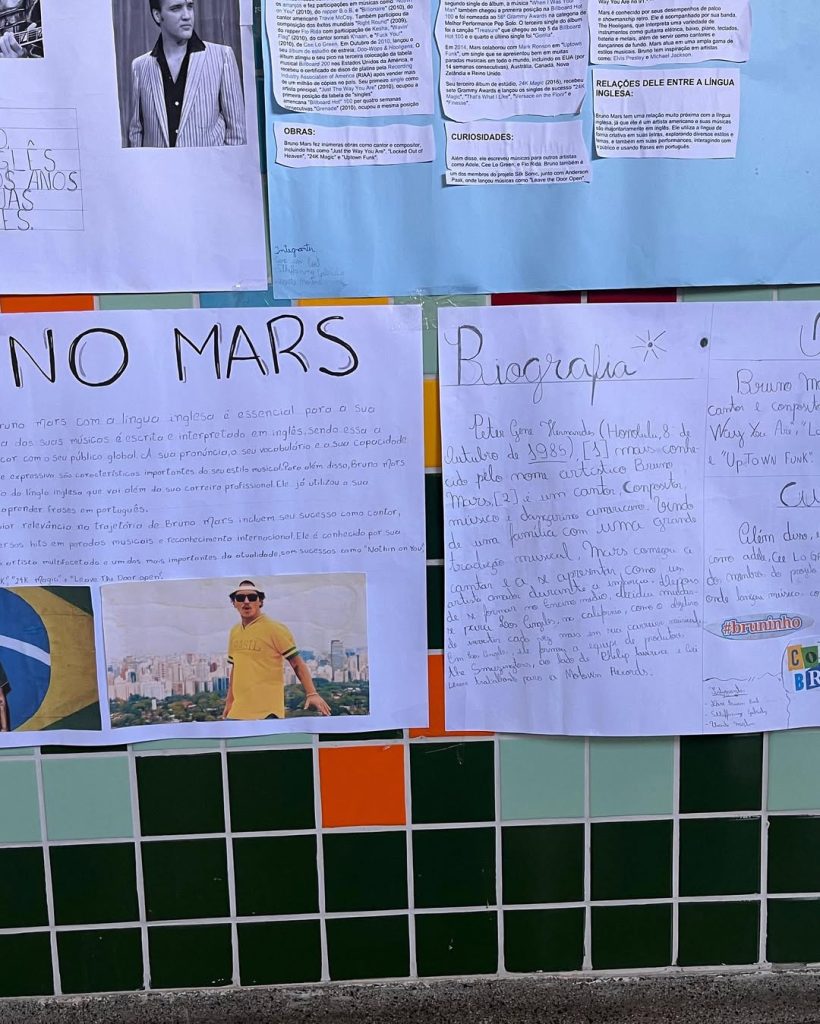 GLÊS
ANOS
on You" (2010), do rapper B.o.B, "Billionaire" (2010), do
cantor americano Travie McCoy. Também participou da
composição dos êxitos mundiais "Right Round" (2009),
do rapper Flo Rida com participação de Kesha, "Wavin'
Flag" (2010), do cantor somali K'naan, e "Fuck You!"
(2010), de Cee Lo Green. Em Outubro de 2010, lançou o
seu álbum de estúdio de estreia, Doo-Wops & Hooligans. O
álbum atingiu o seu pico na terceira colocação da tabela
musical Billboard 200 nos Estados Unidos da América, e
recebeu o certificado de disco de platina pela Recording
Industry Association of America (RIAA) após vender mais
de um milhão de cópias no país. Seu primeiro single como
artista principal, "Just The Way You Are" (2010), ocupou a
primeira posição da tabela de "singles"
americana "Billboard Hot" 100 por quatro semanas
consecutivas. "Grenade" (2010), ocupou a mesma posição
OBRAS:
Bruno Mars fez inúmeras obras como cantor e compositor,
incluindo hits como "Just the Way You Are", "Locked Out of
Heaven", "24K Magic" e "Uptown Funk".
segundo single do álbum, a música "When I Was Your
Man" também chegou a primeira posição na Billboard Hot
100 e foi nomeada ao 56º Grammy Awards na categoria de
Melhor Performance Pop Solo. O terceiro single do álbum
foi a canção "Treasure" que chegou ao top 5 da Billboard
Hot 100 e o quarto e último single foi "Gorilla".
Em 2014, Mars colaborou com Mark Ronson em "Uptown
Funk", um single que se apresentou bem em muitas
paradas musicais em todo o mundo, incluindo os EUA (por
14 semanas consecutivas), Austrália, Canadá, Nova
Zelândia e Reino Unido.
Seu terceiro álbum de estúdio, 24K Magic (2016), recebeu
sete Grammy Awards e lançou os singles de sucesso "24K
Magic", "That's What I Like", "Versace on the Floor" e
"Finesse".
CURIOSIDADES:
Além disso, ele escreveu músicas para outros artistas
como Adele, Cee Lo Green, e Flo Rida. Bruno também é
um dos membros do projeto Silk Sonic, junto com Anderson
Paak, onde lançou músicas como "Leave the Door Open".
Mars é conhecido por seus desempenhos de palco
e showmanship retro. Ele é acompanhado por sua banda,
The Hooligans, que interpreta uma variedade de
instrumentos como guitarra elétrica, baixo, piano, teclados,
bateria e metais, além de servir como cantores e
dançarinos de fundo. Mars atua em uma ampla gama de
estilos musicais. Bruno tem inspiração em artistas
como: Elvis Presley e Michael Jackson.
RELAÇÕES DELE ENTRE A LÍNGUA
INGLESA:
Bruno Mars tem uma relação muito próxima com a língua
inglesa, já que ele é um artista americano e suas músicas
são majoritariamente em inglês. Ele utiliza a língua de
forma criativa em suas letras, explorando diversos estilos e
temas, e também em suas performances, interagindo com
o público e usando frases em português.
NO MARS
runo Mars com a língua inglesa é essencial para a sua
a das suas músicas é escrita e interpretada em inglês, sendo essa a
car com o seu público global. A sua pronúncia, o seu vocabulário e a sua capacidade
e expressiva são características importantes do seu estilo musical. Para além disso, Bruno Mars
o da língla inglesa que vai além da sua carreira profissional. Ele já utilizou a sua
aprender frases em português.
aior relevância na trajetória de Bruno Mars incluem seu sucesso como cantor,
ersos hits em paradas musicais e reconhecimento internacional. Ele é conhecido por sua
artista multifacetado e um dos mais importantes da atualidade, som sucessos como "Nothin on You",
"24K Magic" e "Leave The Door open".
BRASIL
Biografia
Peter Gene Hernandes (Honolulu, 8 de
outubro de 1985), [1] mais conhe-
cido pelo nome artístico Bruno
Mars, [2] é um cantor, compositor,
músico e dançarino americano. Vindo
de uma família com uma grande
tradução musical. Mars começou a
cantar e a se apresentar como um
artista amador durante a infância. Depois
de se formar no Ensino médio, decidiu mudar-
se para Los Angeles, na califórnia, como o objetivo
de investir cada vez mais em sua carreira
Em Los Angeles, ele formou a equipe de produtores
the Smeezingtons, ao lado de Philip Lawrence e
trabalhando para a Motown Records.
Bruno Ma
cantor e compositor
Way You Are", "L
e "UpTown Funk".
Cu
Além disso, e
como adele, Cee Lo G
dos membros do projeto
onde lançou músicas co
#bruninho
CO
BR